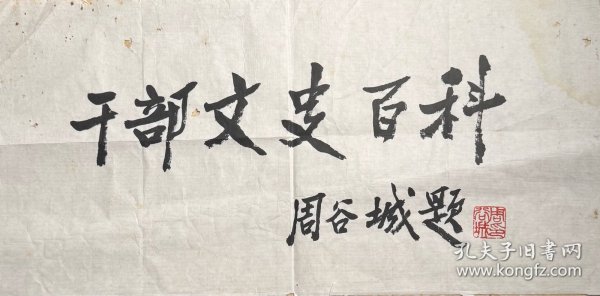 干部文史百科
周谷城题
孔夫子旧书网
www.kongfz.com